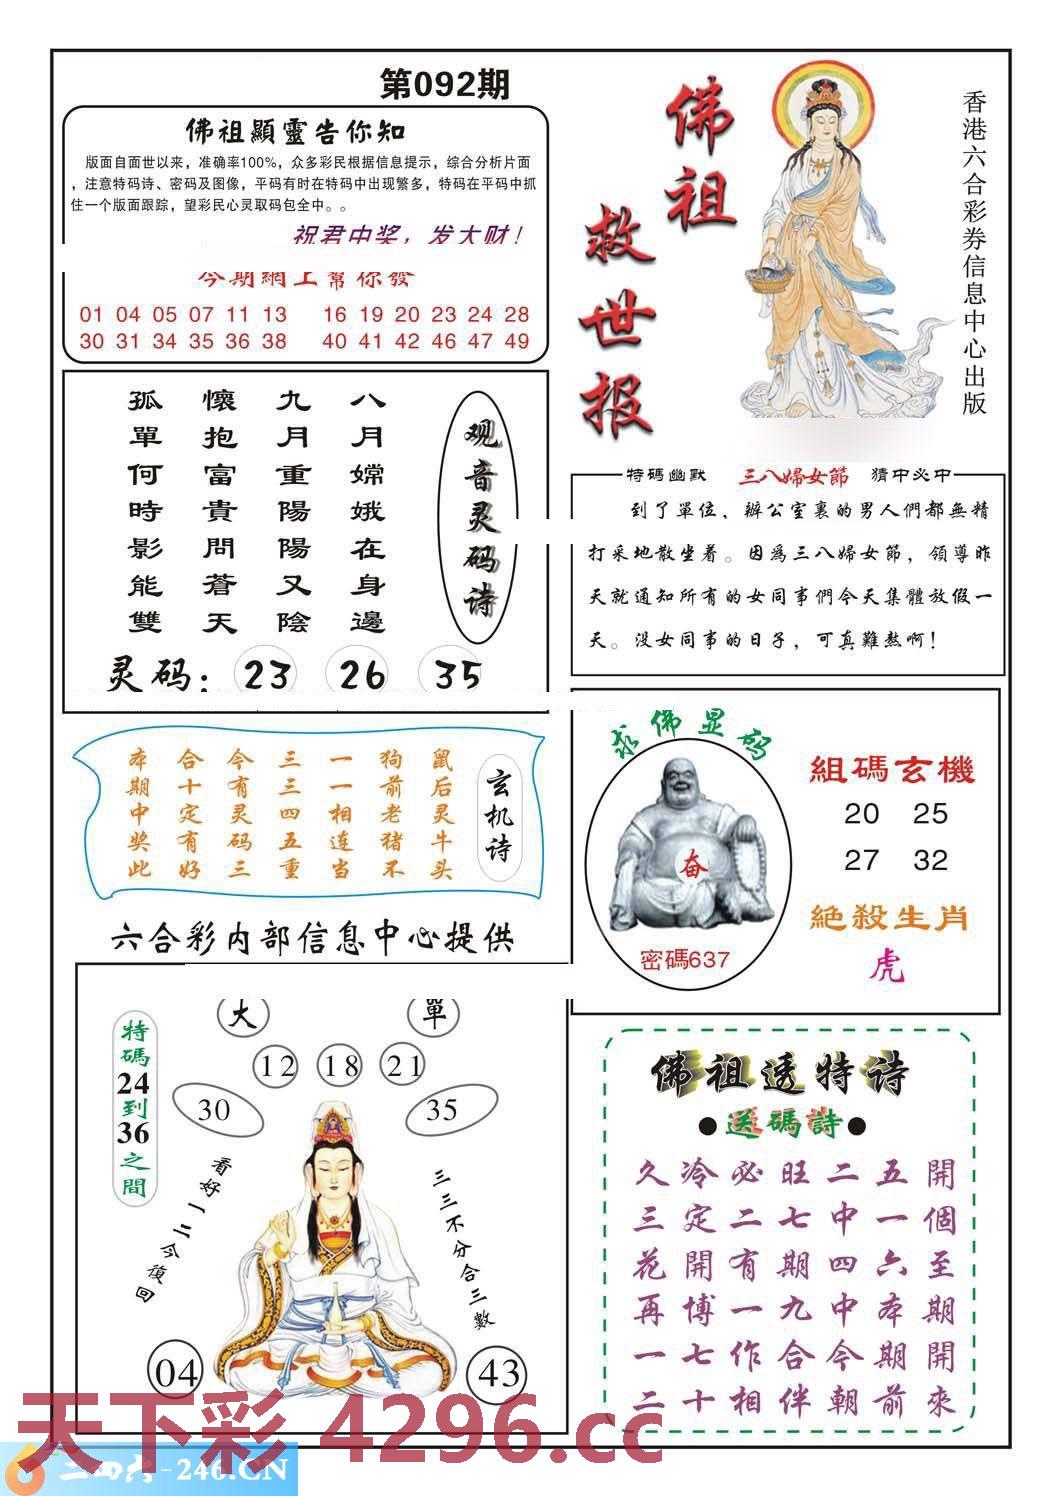 第092期
佛祖顯靈告你知
版面自面世以来，准确率100%，众多彩民根据信息提示，综合分析片面
，注意特码诗、密码及图像，平码有时在特码中出现繁多，特码在平码中抓
住一个版面跟踪，望彩民心灵取码包全中。。
祝君中奖，发大财！
今期網上幫你發
01 04 05 07 11 13 16 19 20 23 24 28
30 31 34 35 36 38 40 41 42 46 47 49
佛祖
救世报
香港六合彩券信息中心出版
观音灵码诗
八月嫦娥在身邊
九月重陽陽又陰
懷抱富貴問蒼天
孤單何時影能雙
灵码：23 26 35
特碼幽默 三八婦女節 猜中必中
到了單位、辦公室裏的男人們都無精
打采地散坐着。因爲三八婦女節，領導昨
天就通知所有的女同事們今天集體放假一
天。没女同事的日子，可真難熬啊！
玄机诗
鼠后灵牛头
狗前老猪不
一一相连当
三三四五重
今有灵码三
合十定有好
本期中奖此
求佛显码
奋
密碼637
組碼玄機
20 25
27 32
絕殺生肖
虎
六合彩内部信息中心提供
特碼24到36之間
大 單
12 18 21
30 35
看好一二今復回
三三不分合三數
04 43
佛祖透特诗
●送碼詩●
久冷必旺二五開
三定二七中一個
花開有期四六至
再博一九中本期
一七作合今期開
二十相伴朝前來
天下彩 4296.cc
二四六-246.CN